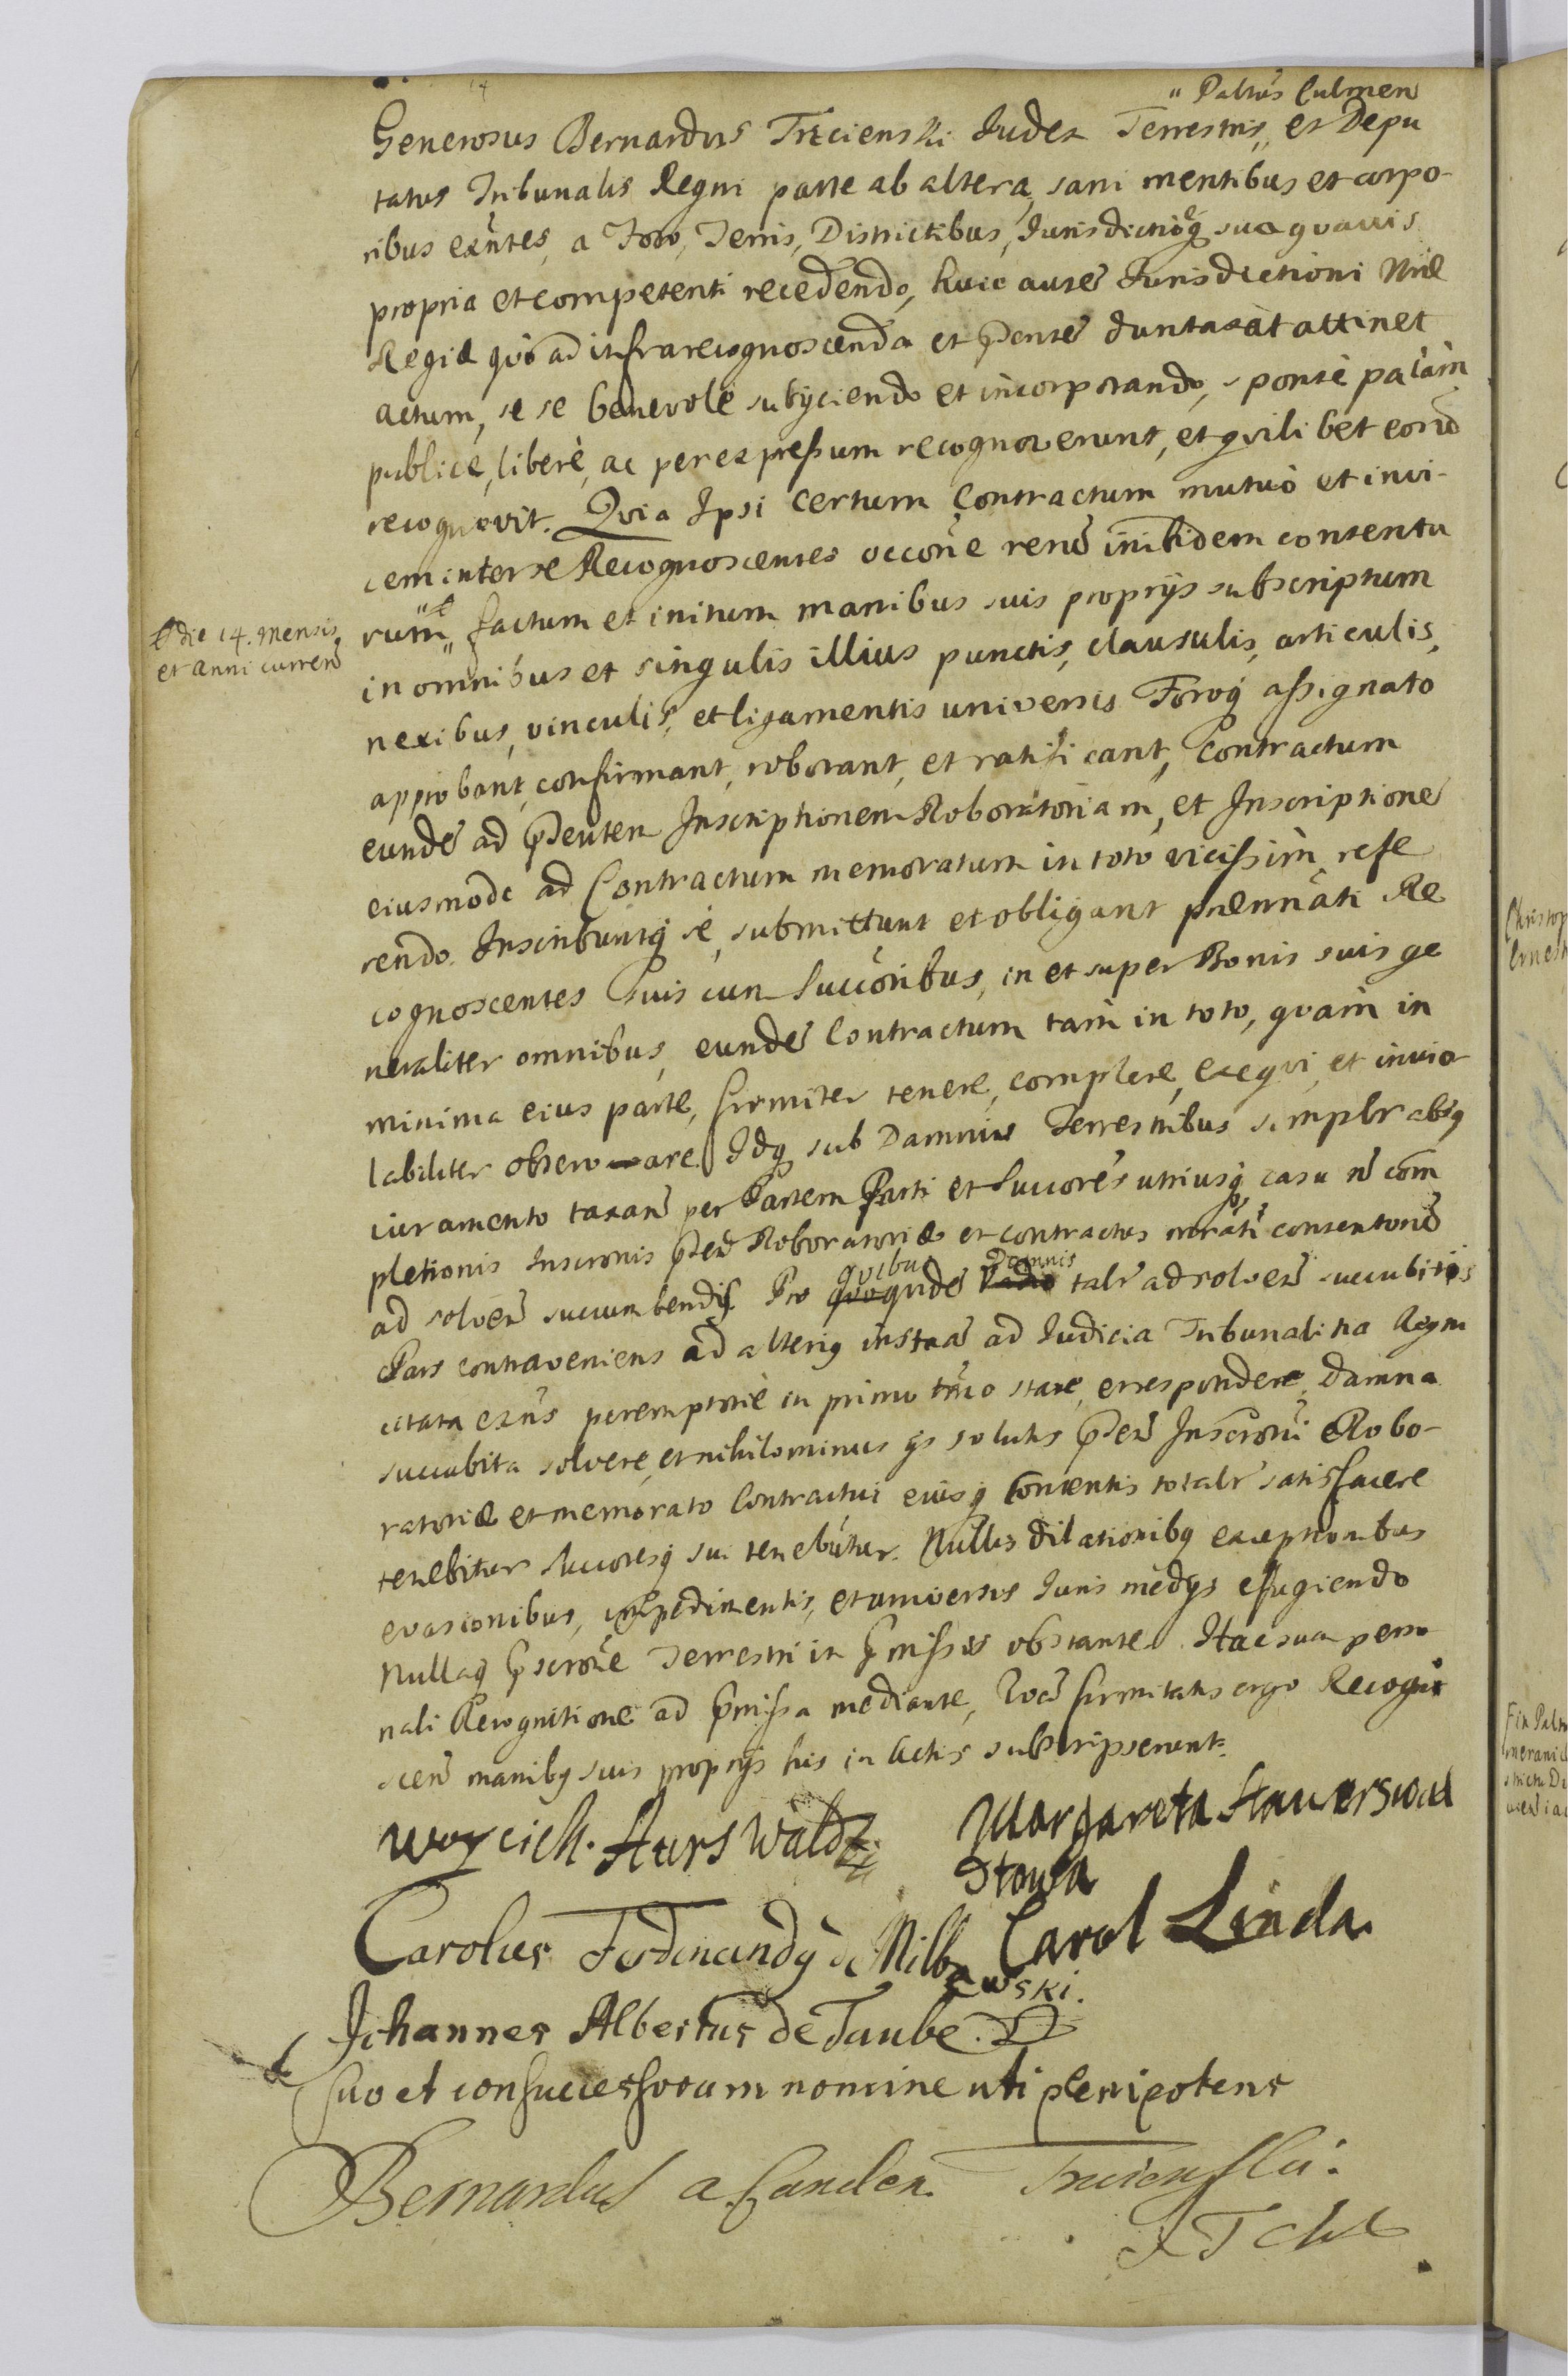 " Paltus Culmen
Generosus Bernardus Trzcienski Judex Terrestris " et Depu
tatus Tribunalis Regni parte ab altera, sani mentibus et corpo-
ribus exñtes, a Foro, Terris, Districtibus, Jurisdictioq̃ sua quavis
propria et competenti recedendo, huic autẽ Jurisdictioni
Regiæ quò ad infra recognoscenda et p̃dentẽ duntaxàt attinet
actum, se se benevole subijciendo et incorporando, sponte palàm
publicè, liberè, ac per expressum recognoverunt, et quilibet eorũ
recognovit. Quia Ipsi certum Contractum mutuò et invi-
cem inter se Recognoscentes occõne rerũ inibidem contentu
rum " factum et initum manibus suis proprijs subscriptum
Et die 14. mensis
et anni curren̄
in omnibus et singulis illius punctis, clausulis, articulis,
nexibus, vinculis, et ligamentis universis Foroq̃ assignato
approbant, confirmant, roborant, et ratificant, Contractum
eundẽ ad p̃dentem Inscriptionem Roboratoriam, et Inscriptionẽ
eiusmodi ad Contractum memoratum in toto vicissim refe
rendo. Inscribuntq̃ se, submittunt et obligant prænnãti Re
cognoscentes suis cum Succõribus, in et super Bonis suis ge
neraliter omnibus, eundẽ Contractum tam in toto, quàm in
minima eius parte, firmiter tenere, complere, exequi, et invio
labiliter observare. Idq̃ sub Damnis Terrestribus simplr absq̃
iuramento taxañ per Partem Parti et Succores utriusq̃ casu nõ com
pletionis Inscronis p̃den̄ Roboratoriæ et contractus mrãti contentorũ
ad solven̄ succumbendis Pro quibus quidẽ Damnis talr ad solven̄ succubitis
Pars contraveniens ad alterig̃ instãã ad Judicia Tribunalitia Regni
citata exñs peremptoriè in primo tm̃o stare, et respondere, damna
succubita solvere, et nihilominus ijs solutis p̃den̄ Inscroni Robo-
ratoriæ et memorato Contractui eiusq̃ contentis totalr satisfacere
tenebitur Succoresq̃ sui tenebuntur. Nullis dilationibq̃ exceptionibus
evasionibus, impedimentis, et universis Juris medijs effugiendo
Nullaq̃ p̃scrõne Terrestri in p̃missis obstante. Hac sua perso
nali Recognitione ad p̃missa mediante, firmitatis ergo Recogni
scen̄ manibq̃ suis proprijs his in Actis subscripserunt.
Woycieh. Sturs Waldzki
Margareta Stauerswal
dtowa
Carolus Ferdinandq̃ de Milbawski.
Carol Linda.
Johannes Albertus de Taube
Suo et consuccessorum nomine uti plenipotens
Bernardus a Canden Trzcienski.
J T Ch
Christop
Ernest